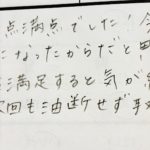 点満点でした！
になったからだと
満足すると気が
回も油断せず